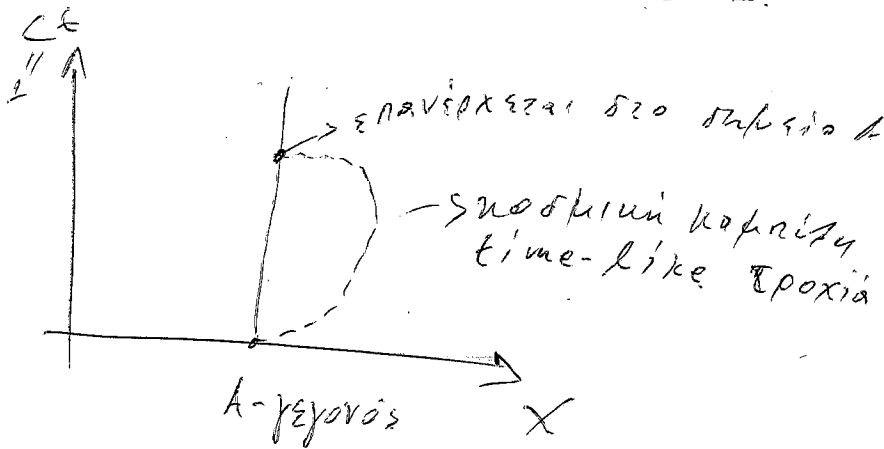 ct
1
επανέρχεται στο σημείο A
κοσμική καμπύλη
time-like τροχιά
A-γεγονός
X